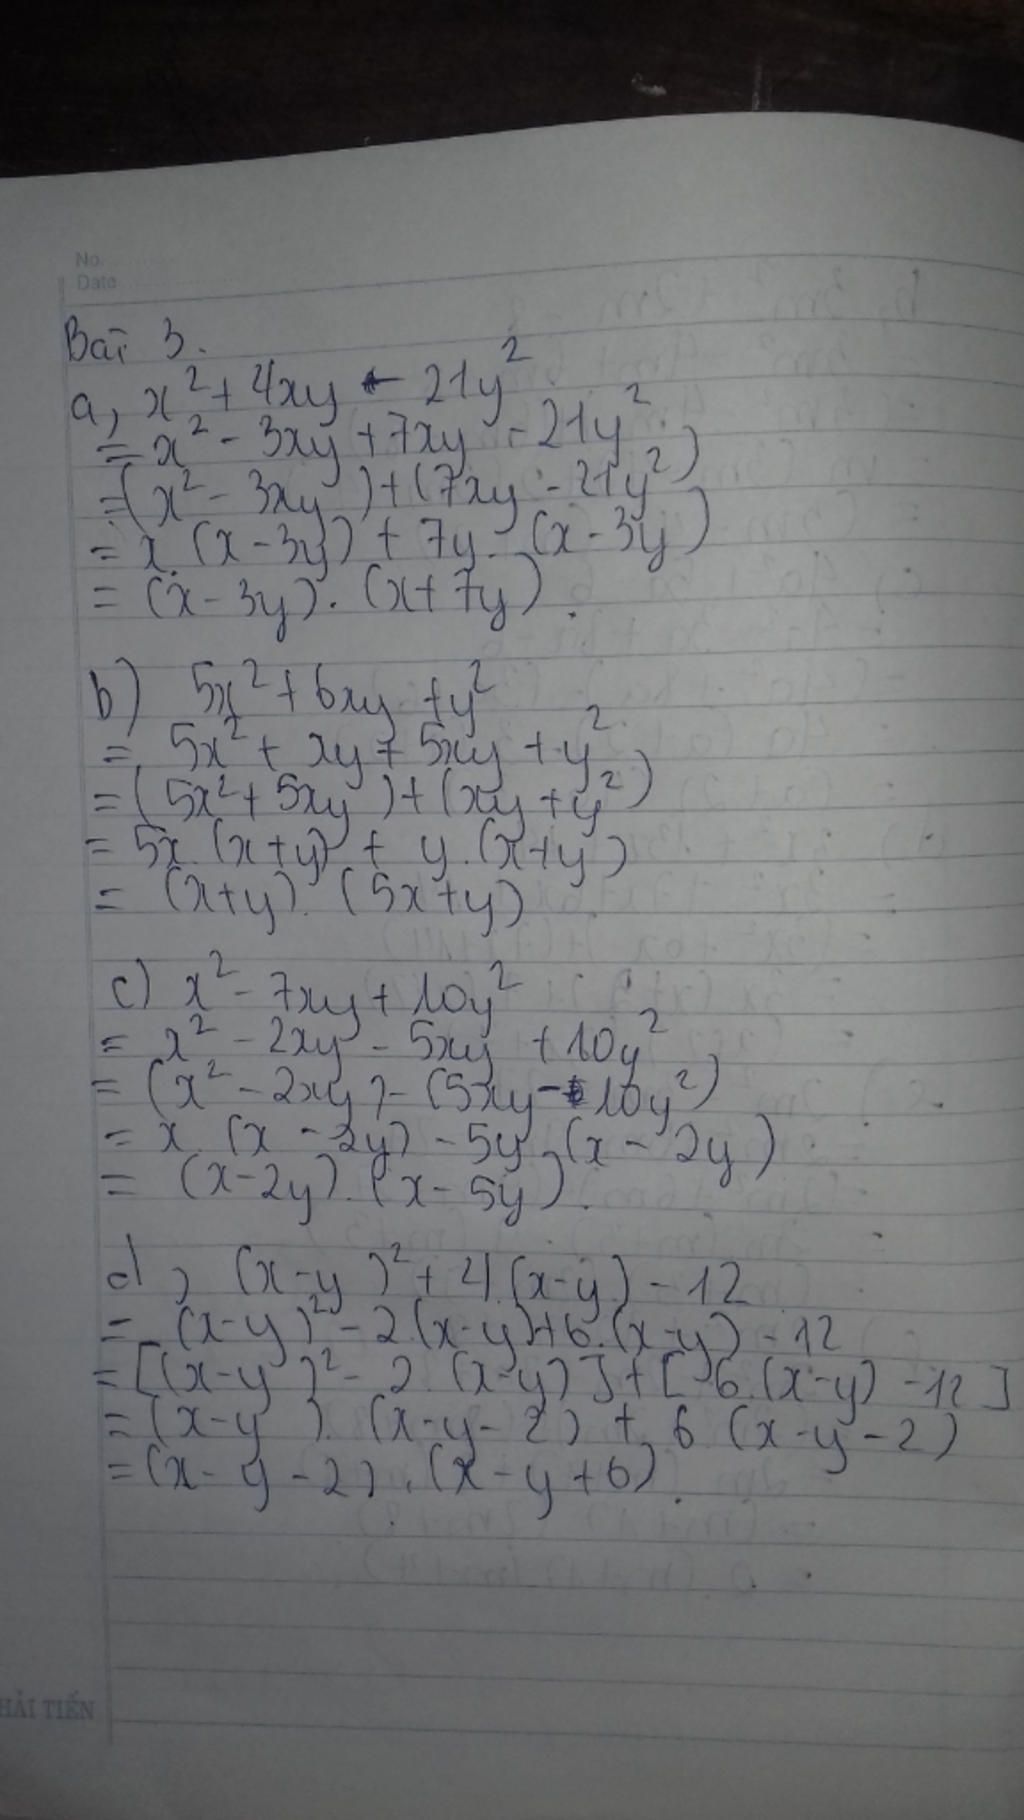 No.
Date
Bài 3.
a, x² + 4xy - 21y²
= x² - 3xy + 7xy - 21y²
= (x² - 3xy) + (7xy - 21y²)
= x.(x - 3y) + 7y.(x - 3y)
= (x - 3y).(x + 7y).
b) 5x² + 6xy + y²
= 5x² + xy + 5xy + y²
= (5x² + 5xy) + (xy + y²)
= 5x.(x+y) + y.(x+y)
= (x+y).(5x+y)
c) x² - 7xy + 10y²
= x² - 2xy - 5xy + 10y²
= (x² - 2xy) - (5xy - 10y²)
= x.(x - 2y) - 5y.(x - 2y)
= (x - 2y).(x - 5y).
d, (x-y)² + 4.(x-y) - 12
= (x-y)² - 2.(x-y) + 6.(x-y) - 12
= [(x-y)² - 2.(x-y)] + [6.(x-y) - 12]
= (x-y).(x-y-2) + 6.(x-y-2)
= (x-y-2).(x-y+6).
HẢI TIẾN